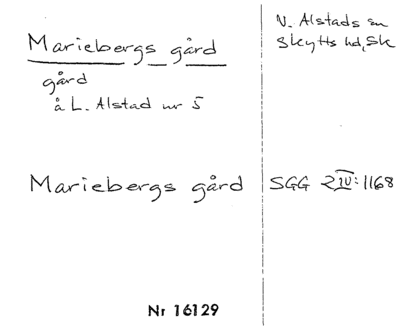 Mariebergs gård
gård
å L. Alstad nr 5
V. Alstads sn
Skytts hd, Sk
Mariebergs gård
SGG 2 IV: 1168
Nr 16129